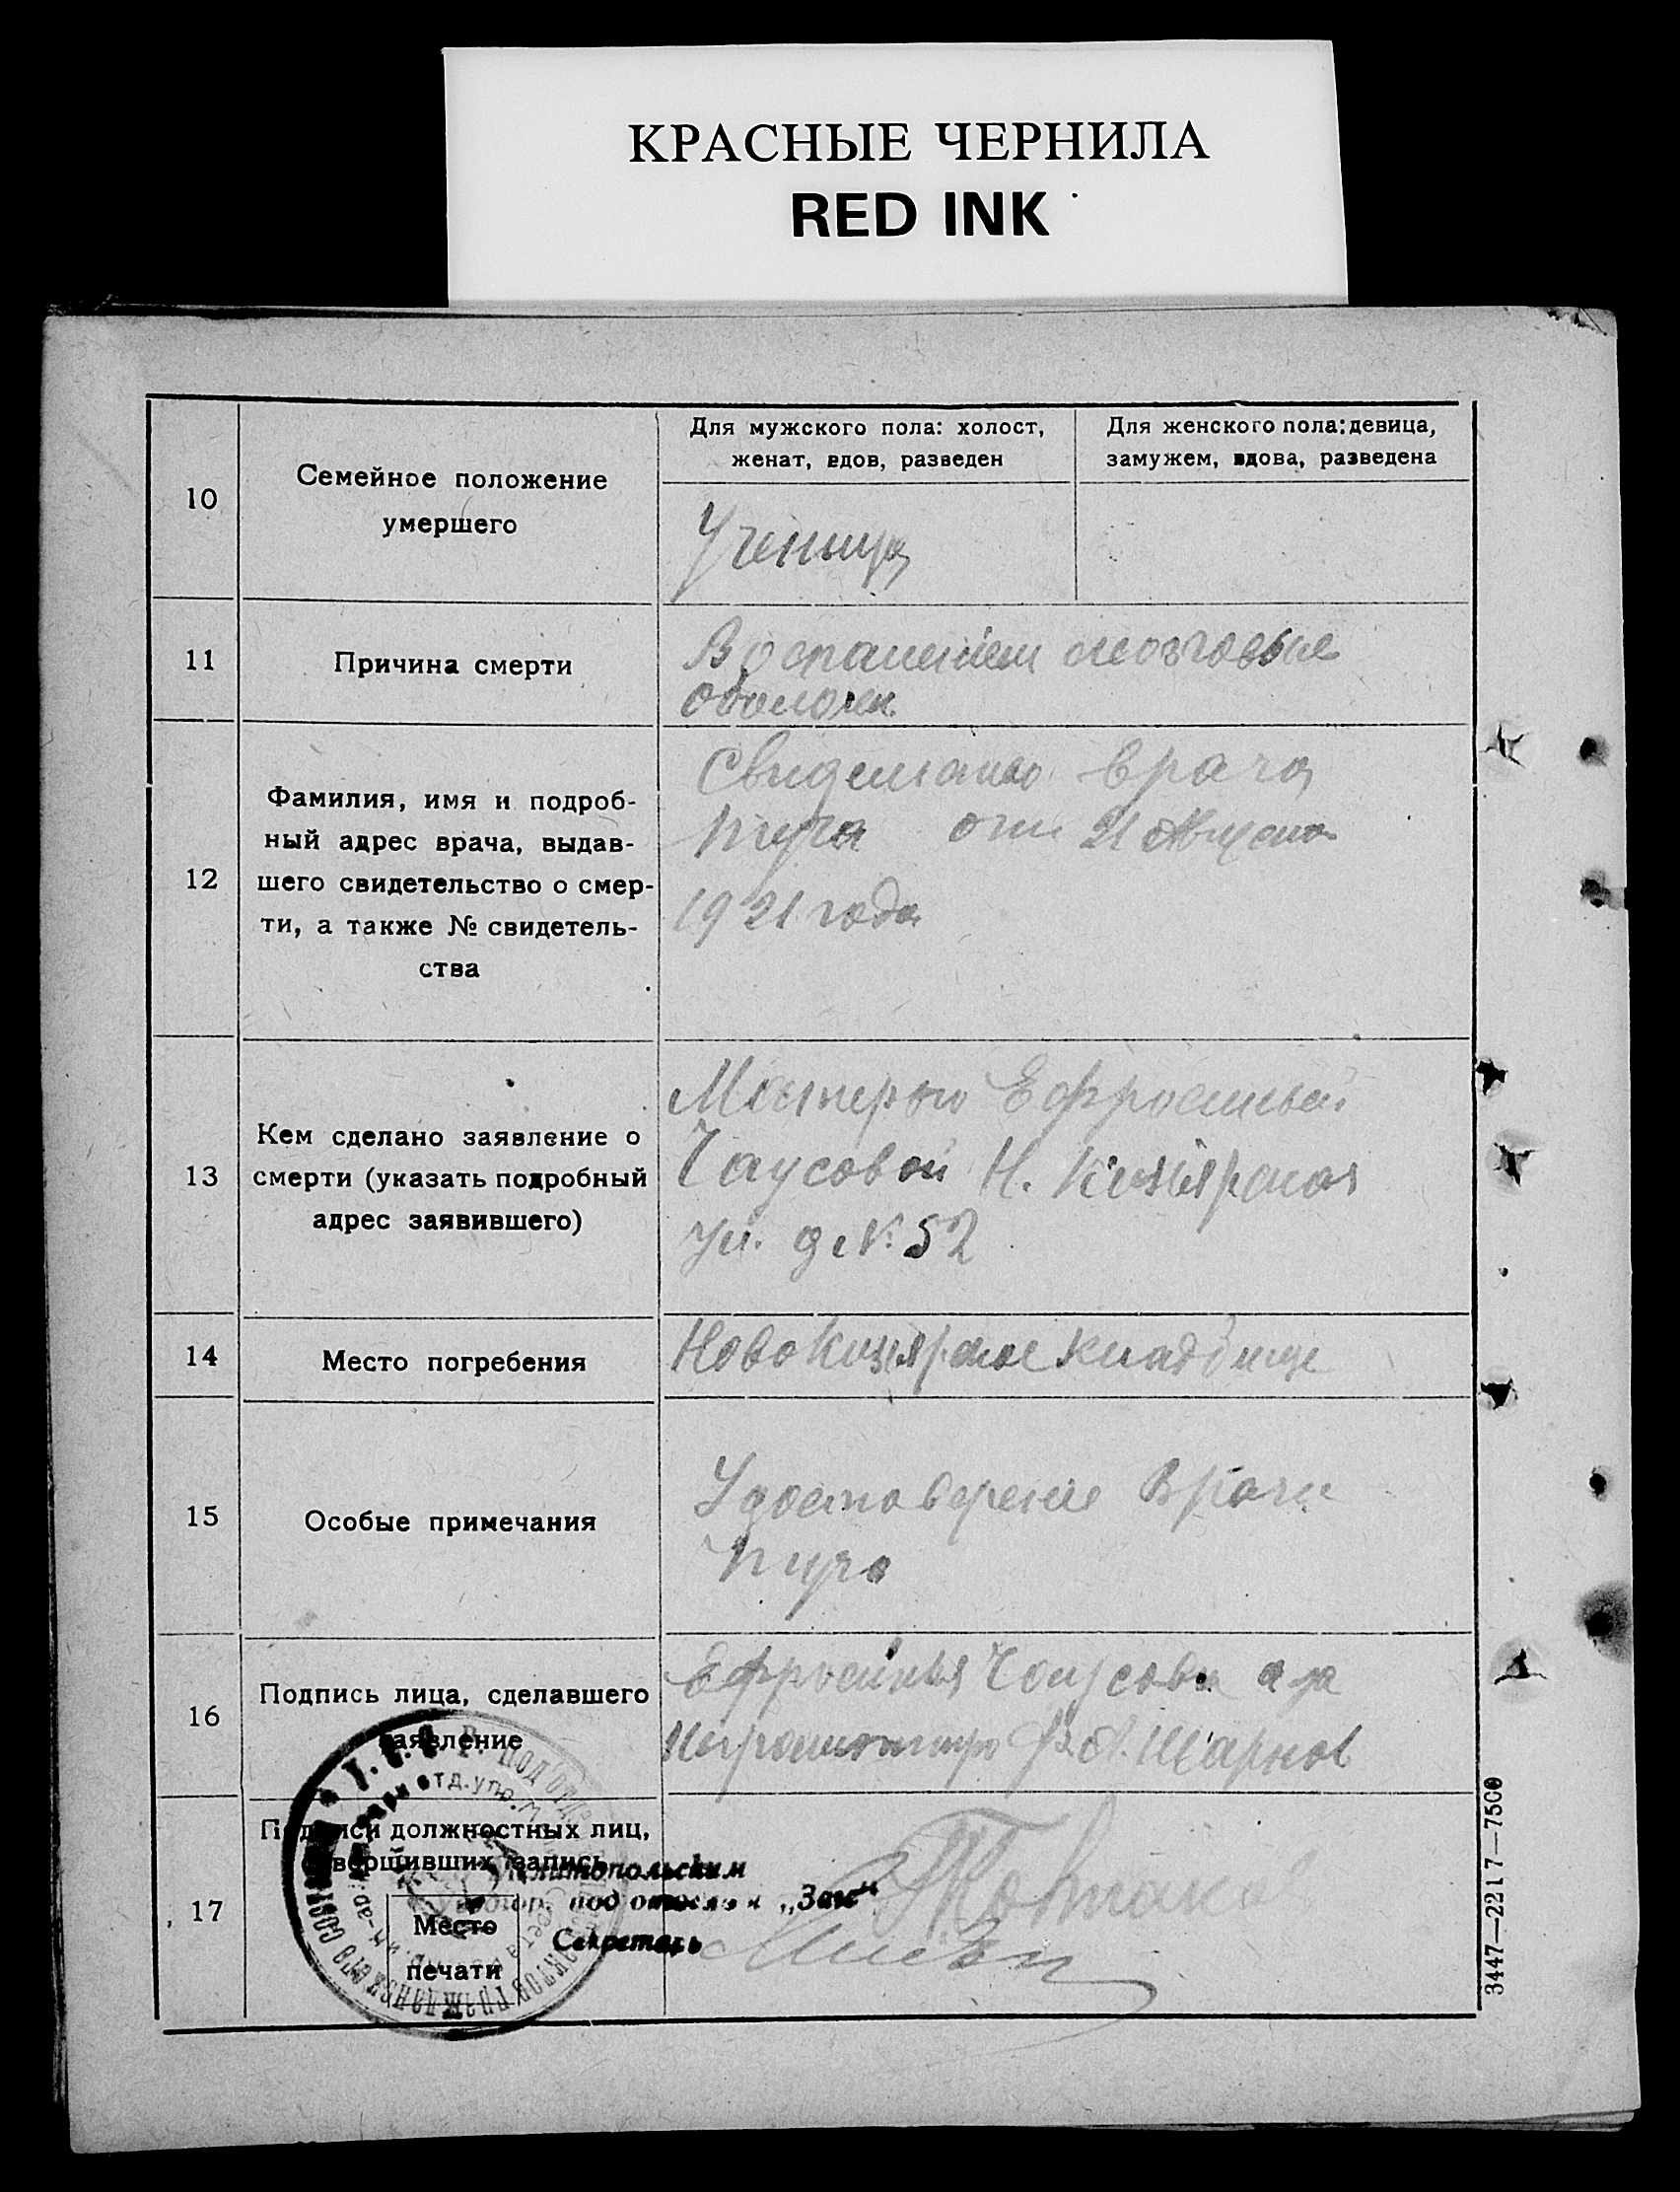 КРАСНЫЕ ЧЕРНИЛА
RED INK
10
Семейное положение
умершего
Для мужского пола: холост,
женат, вдов, разведен
Для женского пола: девица,
замужем, вдова, разведена
Ученица
11
Причина смерти
Воспалением мозговые
оболочек
12
Фамилия, имя и подроб-
ный адрес врача, выдав-
шего свидетельство о смер-
ти, а также № свидетель-
ства
врача
от 21 Августа
1921 года
13
Кем сделано заявление о
смерти (указать подробный
адрес заявившего)
Матерью Ефросиньей
Чаусовой Н. Кизиярская
ул. д № 52
14
Место погребения
Ново Кизиярское кладбище
15
Особые примечания
Удостоверение Врача
16
Подпись лица, сделавшего
заявление
Ефросинья Чаусова а за
17
Подписи должностных лиц,
совершивших запись
Место
печати
под отделом „Загс“
Секретарь
3447—2217—7500